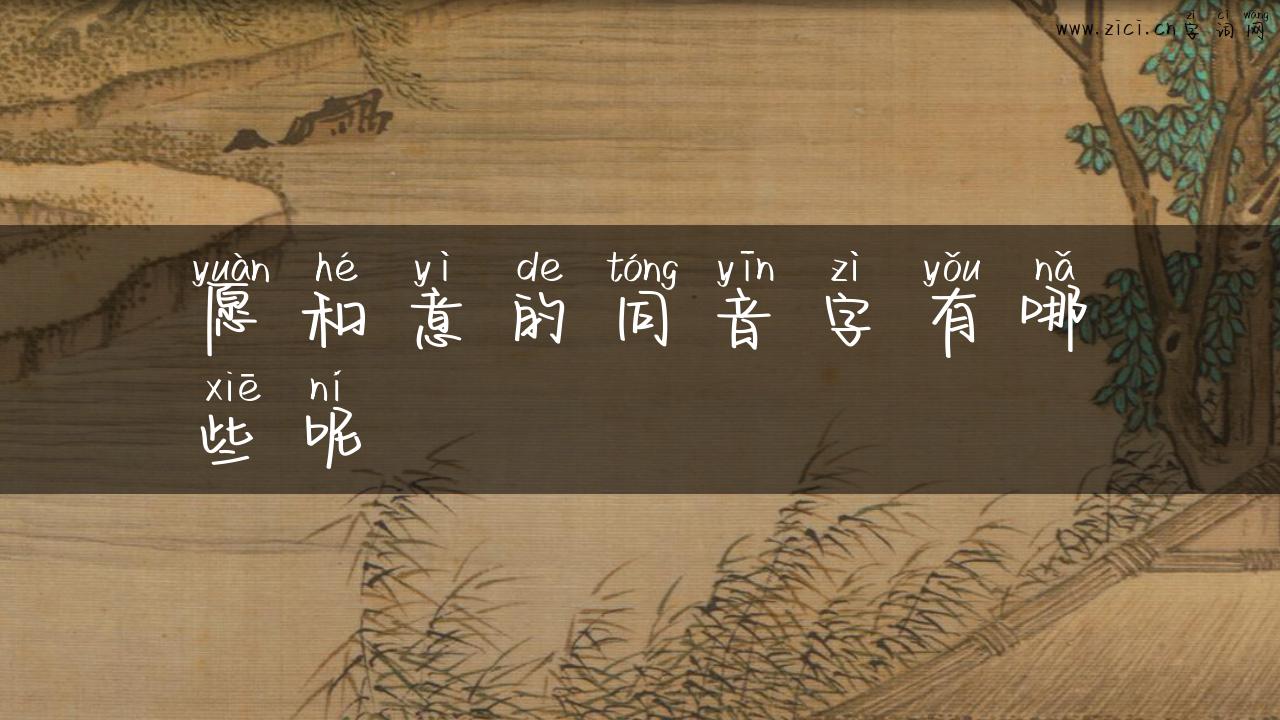 zì cí wǎng
www.zici.cn字词网
yuàn hé yì de tóng yīn zì yǒu nǎ
愿和意的同音字有哪
xiē ní
些呢